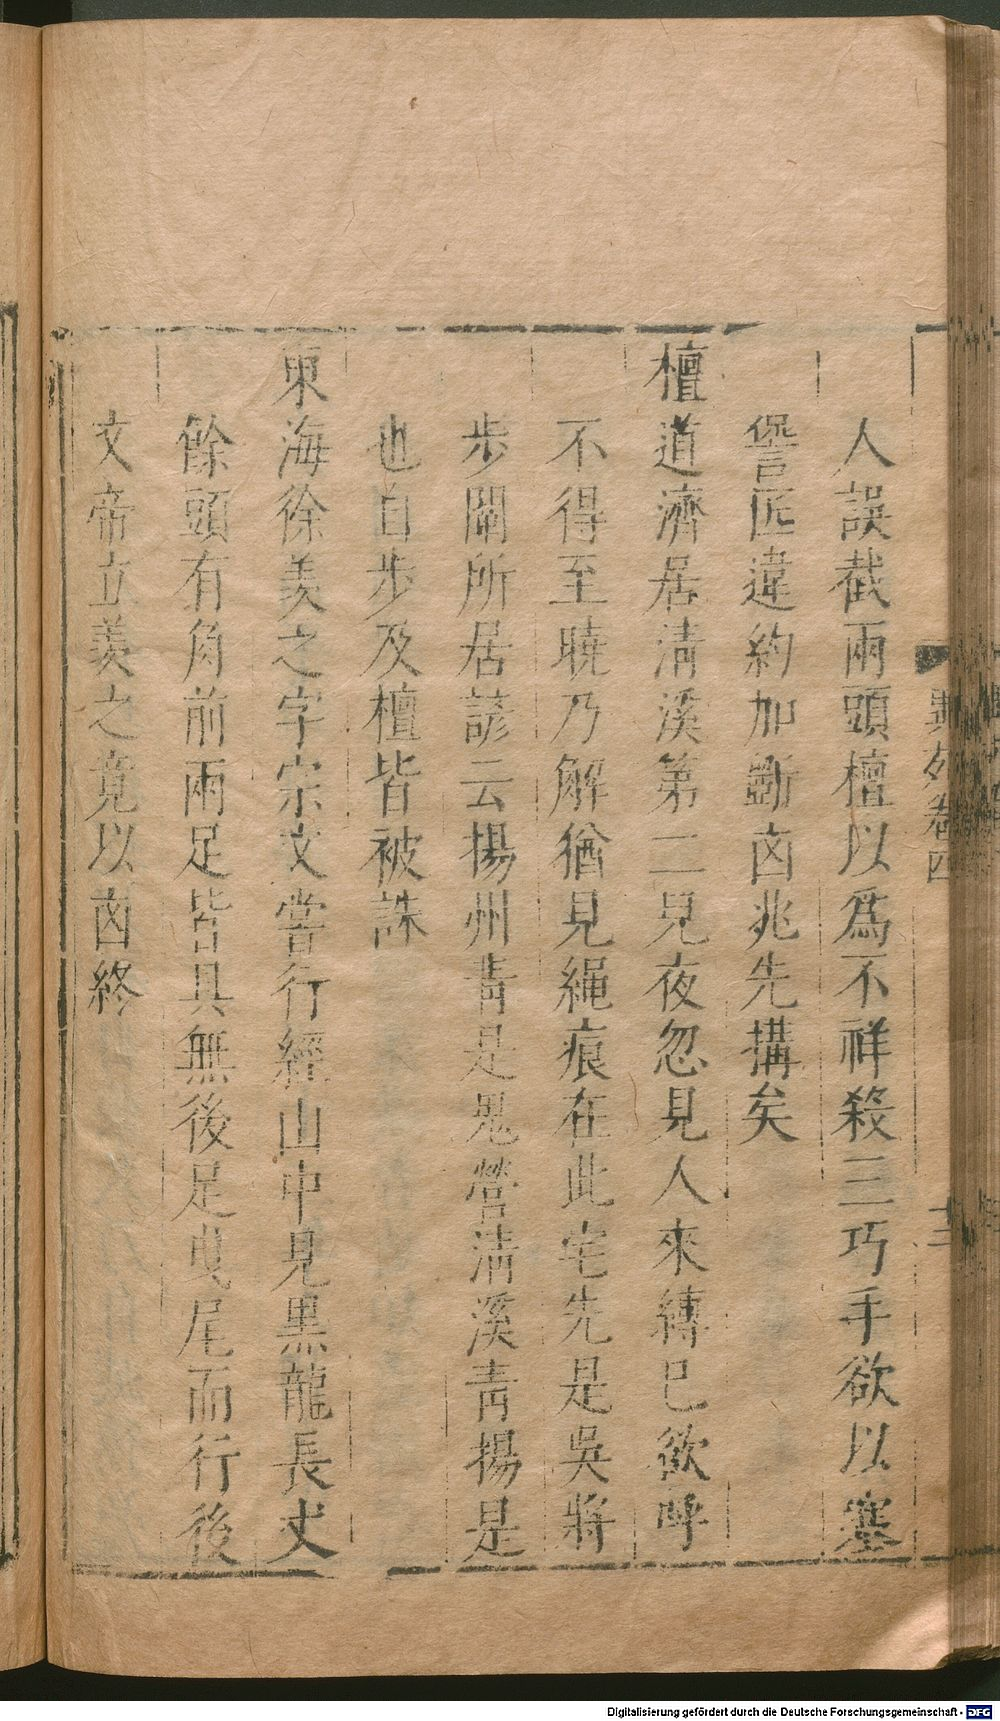 人誤截兩頭檀以爲不祥殺三巧手欲以塞
諐匠違約加斷凶兆先搆矣
檀道濟居淸溪第二兒夜忽見人來縳已欲呼
不得至曉乃解猶見繩痕在此宅先是吳將
步闡所居諺云揚州靑是鬼營淸溪靑揚是
也自步及檀皆被誅
東海徐羡之字宗文嘗行經山中見黑龍長丈
餘頭有角前兩足皆具無後足曵尾而行後
文帝立羡之竟以凶終
異苑卷四
Digitalisierung gefördert durch die Deutsche Forschungsgemeinschaft - DFG